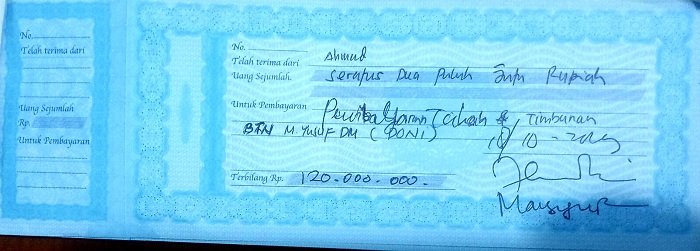 No.
Telah terima dari
Uang Sejumlah
Rp.
Untuk Pembayaran
No.
Telah terima dari Ahmad
Uang Sejumlah Seratus Dua Puluh Juta Rupiah
Untuk Pembayaran Pembayaran Tanah & Timbunan
BTN M. YUSUF DM (DONI)
Terbilang Rp. 120.000.000.